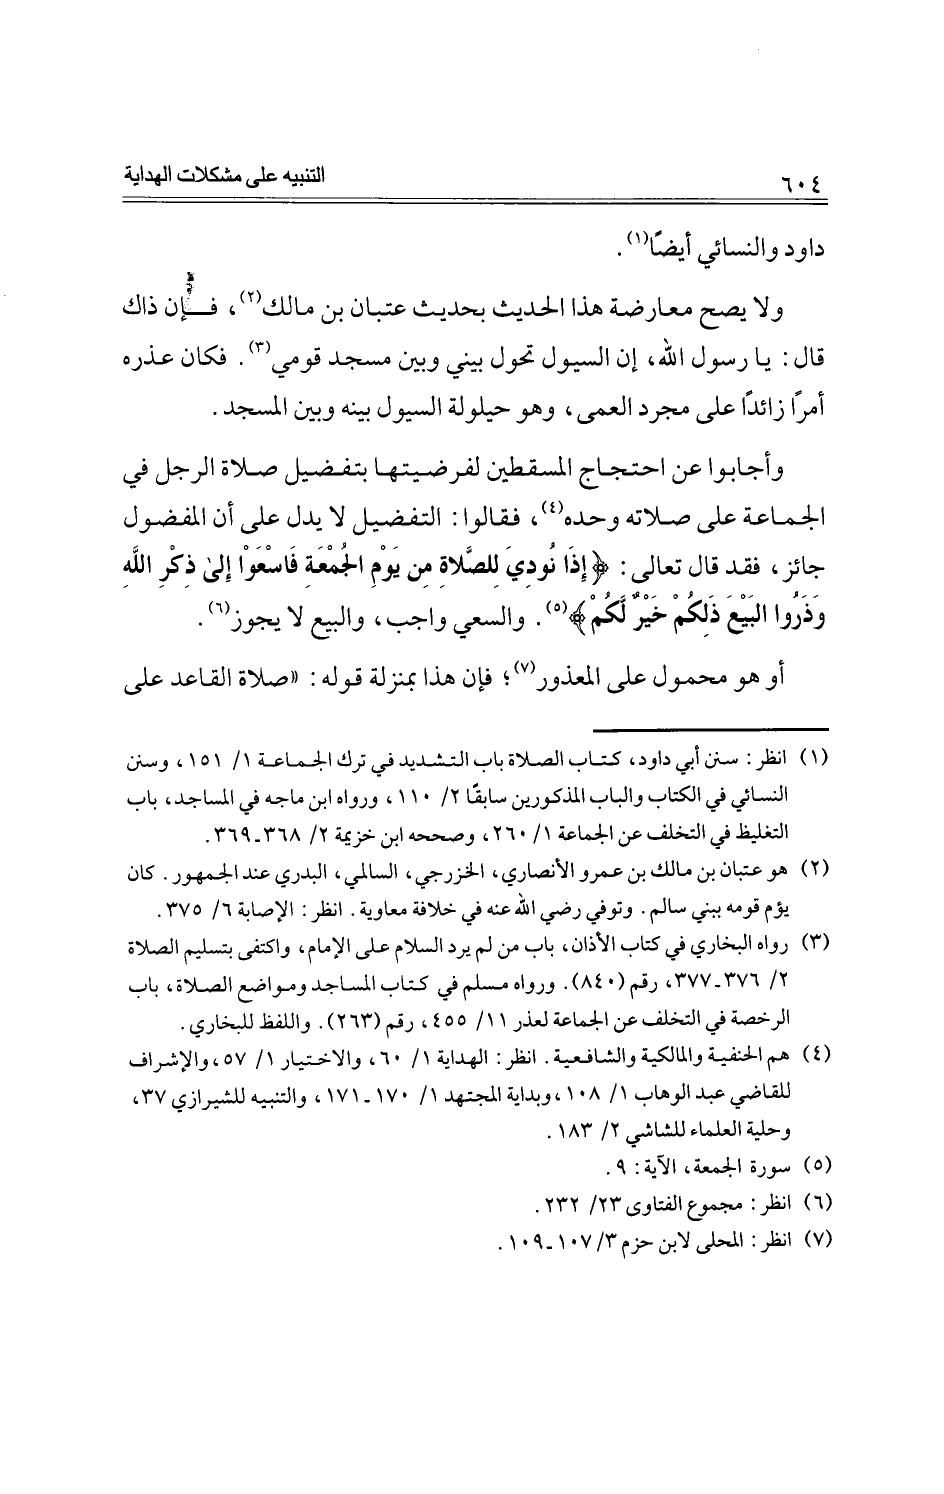 ٦٠٤ التنبيه على مشكلات الهداية
داود والنسائي أيضًا(١).
ولا يصح معارضة هذا الحديث بحديث عتبان بن مالك(٢)، فـإن ذاك
قال: يا رسول الله، إن السيول تحول بيني وبين مسجد قومي(٣). فكان عذره
أمرًا زائدًا على مجرد العمى، وهو حيلولة السيول بينه وبين المسجد.
وأجابوا عن احتجاج المسقطين لفرضيتها بتفضيل صلاة الرجل في
الجماعة على صلاته وحده(٤)، فقالوا: التفضيل لا يدل على أن المفضول
جائز، فقد قال تعالى: ﴿إِذَا نُودِيَ لِلصَّلَاةِ مِن يَوْمِ الجُمْعَةِ فَاسْعَوْا إِلىٰ ذِكْرِ اللَّهِ
وَذَرُوا البَيْعَ ذَلِكُمْ خَيْرٌ لَّكُمْ﴾(٥). والسعي واجب، والبيع لا يجوز(٦).
أو هو محمول على المعذور(٧)؛ فإن هذا بمنزلة قوله: «صلاة القاعد على
(١) انظر: سنن أبي داود، كتاب الصلاة باب التشديد في ترك الجماعة ١/ ١٥١، وسنن
النسائي في الكتاب والباب المذكورين سابقًا ٢/ ١١٠، ورواه ابن ماجه في المساجد، باب
التغليظ في التخلف عن الجماعة ١/ ٢٦٠، وصححه ابن خزيمة ٢/ ٣٦٨-٣٦٩.
(٢) هو عتبان بن مالك بن عمرو الأنصاري، الخزرجي، السالمي، البدري عند الجمهور. كان
يؤم قومه ببني سالم. وتوفي رضي الله عنه في خلافة معاوية. انظر: الإصابة ٦/ ٣٧٥.
(٣) رواه البخاري في كتاب الأذان، باب من لم يرد السلام على الإمام، واكتفى بتسليم الصلاة
٢/ ٣٧٦-٣٧٧، رقم (٨٤٠). ورواه مسلم في كتاب المساجد ومواضع الصلاة، باب
الرخصة في التخلف عن الجماعة لعذر ١١/ ٤٥٥، رقم (٢٦٣). واللفظ للبخاري.
(٤) هم الحنفية والمالكية والشافعية. انظر: الهداية ١/ ٦٠، والاختيار ١/ ٥٧، والإشراف
للقاضي عبد الوهاب ١/ ١٠٨، وبداية المجتهد ١/ ١٧٠-١٧١، والتنبيه للشيرازي ٣٧،
وحلية العلماء للشاشي ٢/ ١٨٣.
(٥) سورة الجمعة، الآية: ٩.
(٦) انظر: مجموع الفتاوى ٢٣/ ٢٣٢.
(٧) انظر: المحلى لابن حزم ٣/ ١٠٧-١٠٩.